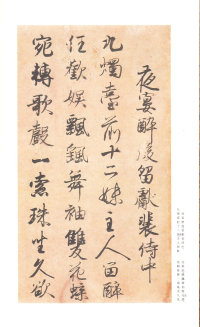 夜宴醉後留獻裴侍中
九燭臺前十二姝主人留醉
任歡娛飄颻舞袖雙飛蝶
宛轉歌聲一索珠坐久欲